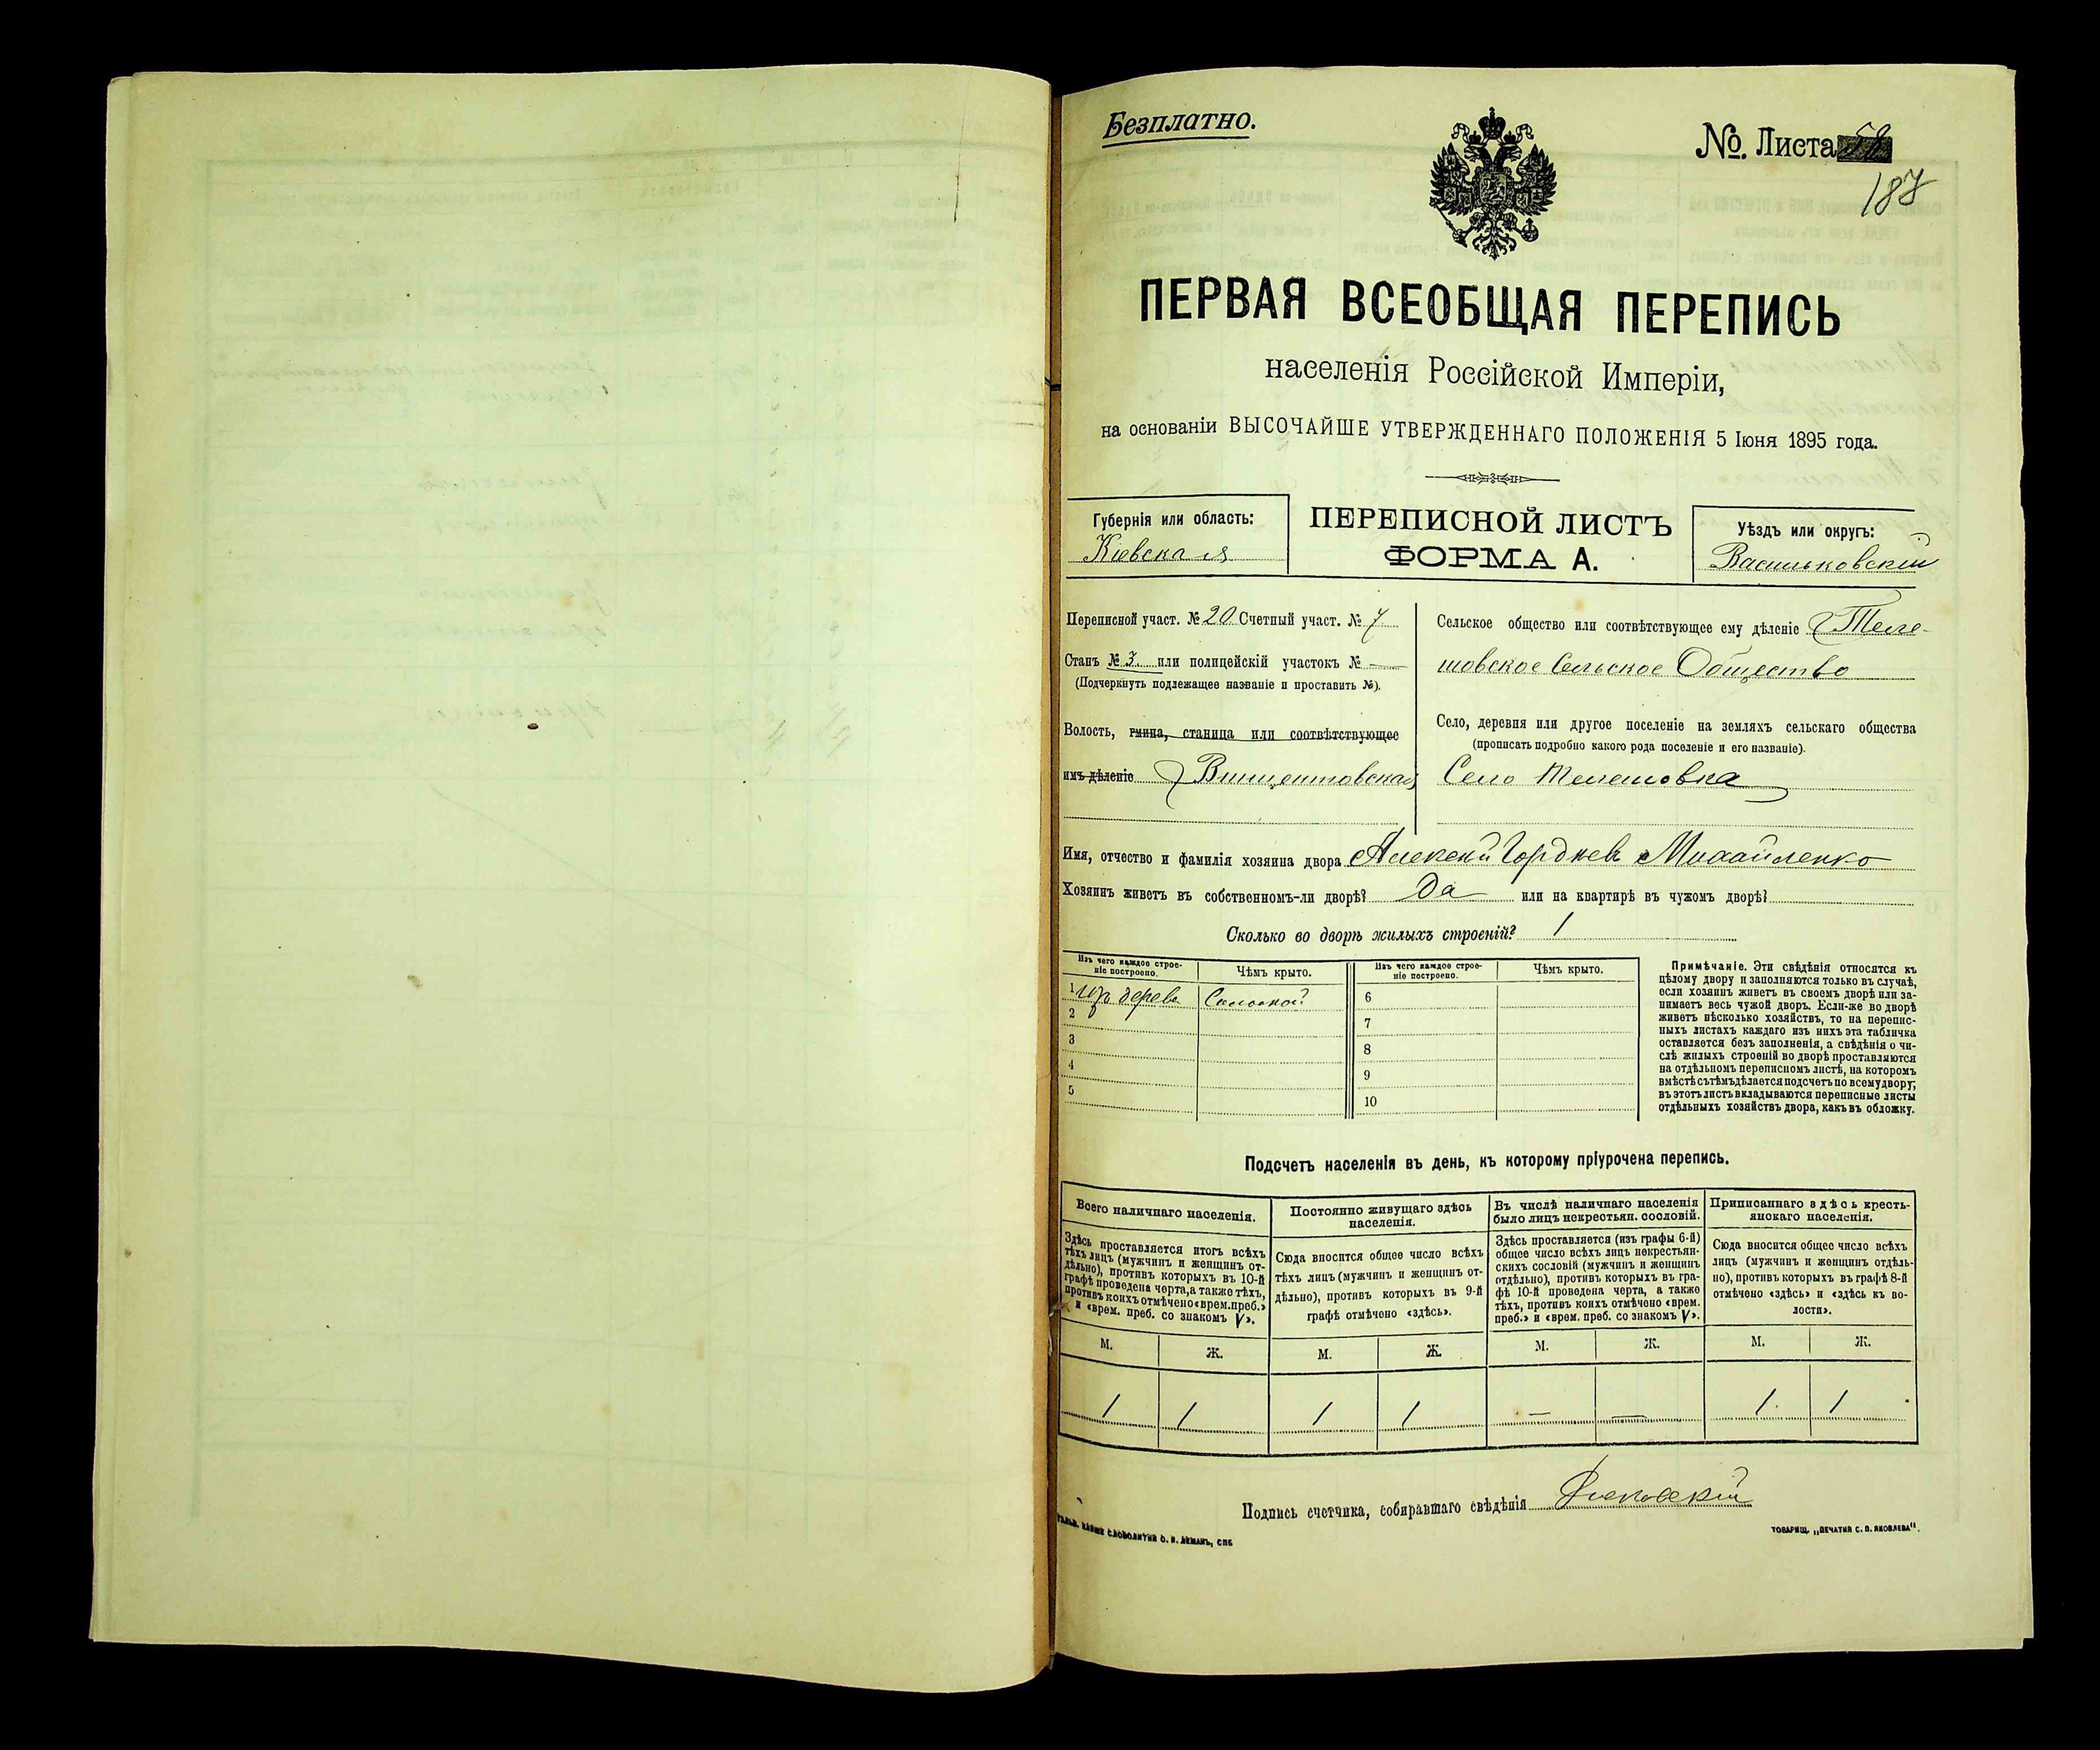 Безплатно.
№. Листа 58
187
ПЕРВАЯ ВСЕОБЩАЯ ПЕРЕПИСЬ
населенія Россійской Имперіи,
на основаніи ВЫСОЧАЙШЕ УТВЕРЖДЕННАГО ПОЛОЖЕНІЯ 5 Іюня 1895 года.
Губернія или область:
Кіевская
ПЕРЕПИСНОЙ ЛИСТЪ
ФОРМА А.
Уѣздъ или округъ:
Васильковскій
Переписной участ. № 20 Счетный участ. № 7
Станъ № 3 или полицейскій участокъ № —
(Подчеркнуть подлежащее названіе и проставить №).
Волость, гмина, станица или соотвѣтствующее
имъ дѣленіе Винцентовская
Сельское общество или соотвѣтствующее ему дѣленіе Теле-
шовское Сельское Общество
Село, деревня или другое поселеніе на земляхъ сельскаго общества
(прописать подробно какого рода поселеніе и его названіе).
Село Телешовка
Имя, отчество и фамилія хозяина двора Алексей Гордіевъ Михайленко
Хозяинъ живетъ въ собственномъ-ли дворѣ? Да или на квартирѣ въ чужомъ дворѣ?
Сколько во дворѣ жилыхъ строеній? 1
Изъ чего каждое строе-
ніе построено.
Чѣмъ крыто.
Изъ чего каждое строе-
ніе построено.
Чѣмъ крыто.
1 дерева Соломой
2
3
4
5
6
7
8
9
10
Примѣчаніе. Эти свѣдѣнія относятся къ
цѣлому двору и заполняются только въ случаѣ,
если хозяинъ живетъ въ своемъ дворѣ или за-
нимаетъ весь чужой дворъ. Если-же во дворѣ
живетъ нѣсколько хозяйствъ, то на перепис-
ныхъ листахъ каждаго изъ нихъ эта табличка
оставляется безъ заполненія, а свѣдѣнія о чи-
слѣ жилыхъ строеній во дворѣ проставляются
на отдѣльномъ переписномъ листѣ, на которомъ
вмѣстѣ съ тѣмъ дѣлается подсчетъ по всему двору;
въ этотъ листъ вкладываются переписные листы
отдѣльныхъ хозяйствъ двора, какъ въ обложку.
Подсчетъ населенія въ день, къ которому пріурочена перепись.
Всего наличнаго населенія.
Здѣсь проставляется итогъ всѣхъ
тѣхъ лицъ (мужчинъ и женщинъ от-
дѣльно), противъ которыхъ въ 10-й
графѣ проведена черта, а также тѣхъ,
противъ коихъ отмѣчено «врем. преб.»
и «врем. преб. со знакомъ V».
Постоянно живущаго здѣсь
населенія.
Сюда вносится общее число всѣхъ
тѣхъ лицъ (мужчинъ и женщинъ от-
дѣльно), противъ которыхъ въ 9-й
графѣ отмѣчено «здѣсь».
Въ числѣ наличнаго населенія
было лицъ некрестьян. сословій.
Здѣсь проставляется (изъ графы 6-й)
общее число всѣхъ лицъ некрестьян-
скихъ сословій (мужчинъ и женщинъ
отдѣльно), противъ которыхъ въ гра-
фѣ 10-й проведена черта, а также
тѣхъ, противъ коихъ отмѣчено «врем.
преб.» и «врем. преб. со знакомъ V».
Приписаннаго здѣсь кресть-
янскаго населенія.
Сюда вносится общее число всѣхъ
лицъ (мужчинъ и женщинъ отдѣль-
но), противъ которыхъ въ графѣ 8-й
отмѣчено «здѣсь» и «здѣсь къ во-
лости».
М. Ж. М. Ж. М. Ж. М. Ж.
1 1 1 1 — — 1 1
Подпись счетчика, собиравшаго свѣдѣнія
СЛОВОЛИТНЯ О. И. ЛЕМАНЪ, СПБ
ТОВАРИЩ. „ПЕЧАТНЯ С. П. ЯКОВЛЕВА".